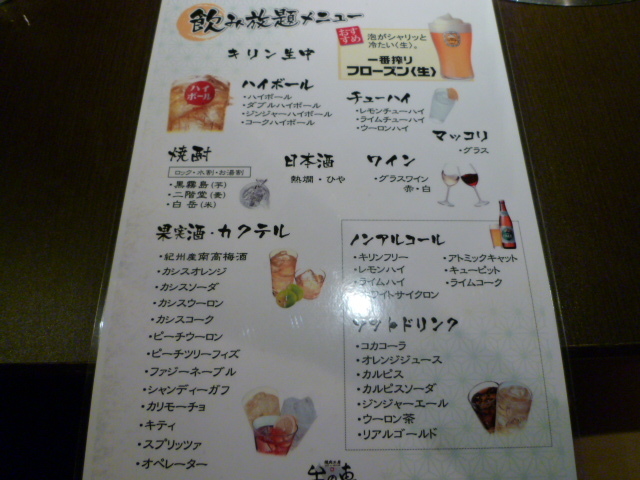 飲み放題メニュー
キリン生中
おすすめ
泡がシャリッと
冷たい(生)。
一番搾り
フローズン(生)
ハイボール
ハイボール
・ハイボール
・ダブルハイボール
・ジンジャーハイボール
・コークハイボール
チューハイ
・レモンチューハイ
・ライムチューハイ
・ウーロンハイ
マッコリ
・グラス
焼酎
ロック・水割・お湯割
・黒霧島(芋)
・二階堂(麦)
・白岳(米)
日本酒
熱燗・ひや
ワイン
・グラスワイン
赤・白
果実酒・カクテル
・紀州産南高梅酒
・カシスオレンジ
・カシスソーダ
・カシスウーロン
・カシスコーク
・ピーチウーロン
・ピーチツリーフィズ
・ファジーネーブル
・シャンディーガフ
・カリモーチョ
・キティ
・スプリッツァ
・オペレーター
ノンアルコール
・キリンフリー
・レモンハイ
・ライムハイ
・ホワイトサイクロン
・アトミックキャット
・キューピット
・ライムコーク
ソフトドリンク
・コカコーラ
・オレンジジュース
・カルピス
・カルピスソーダ
・ジンジャーエール
・ウーロン茶
・リアルゴールド
牛の恵